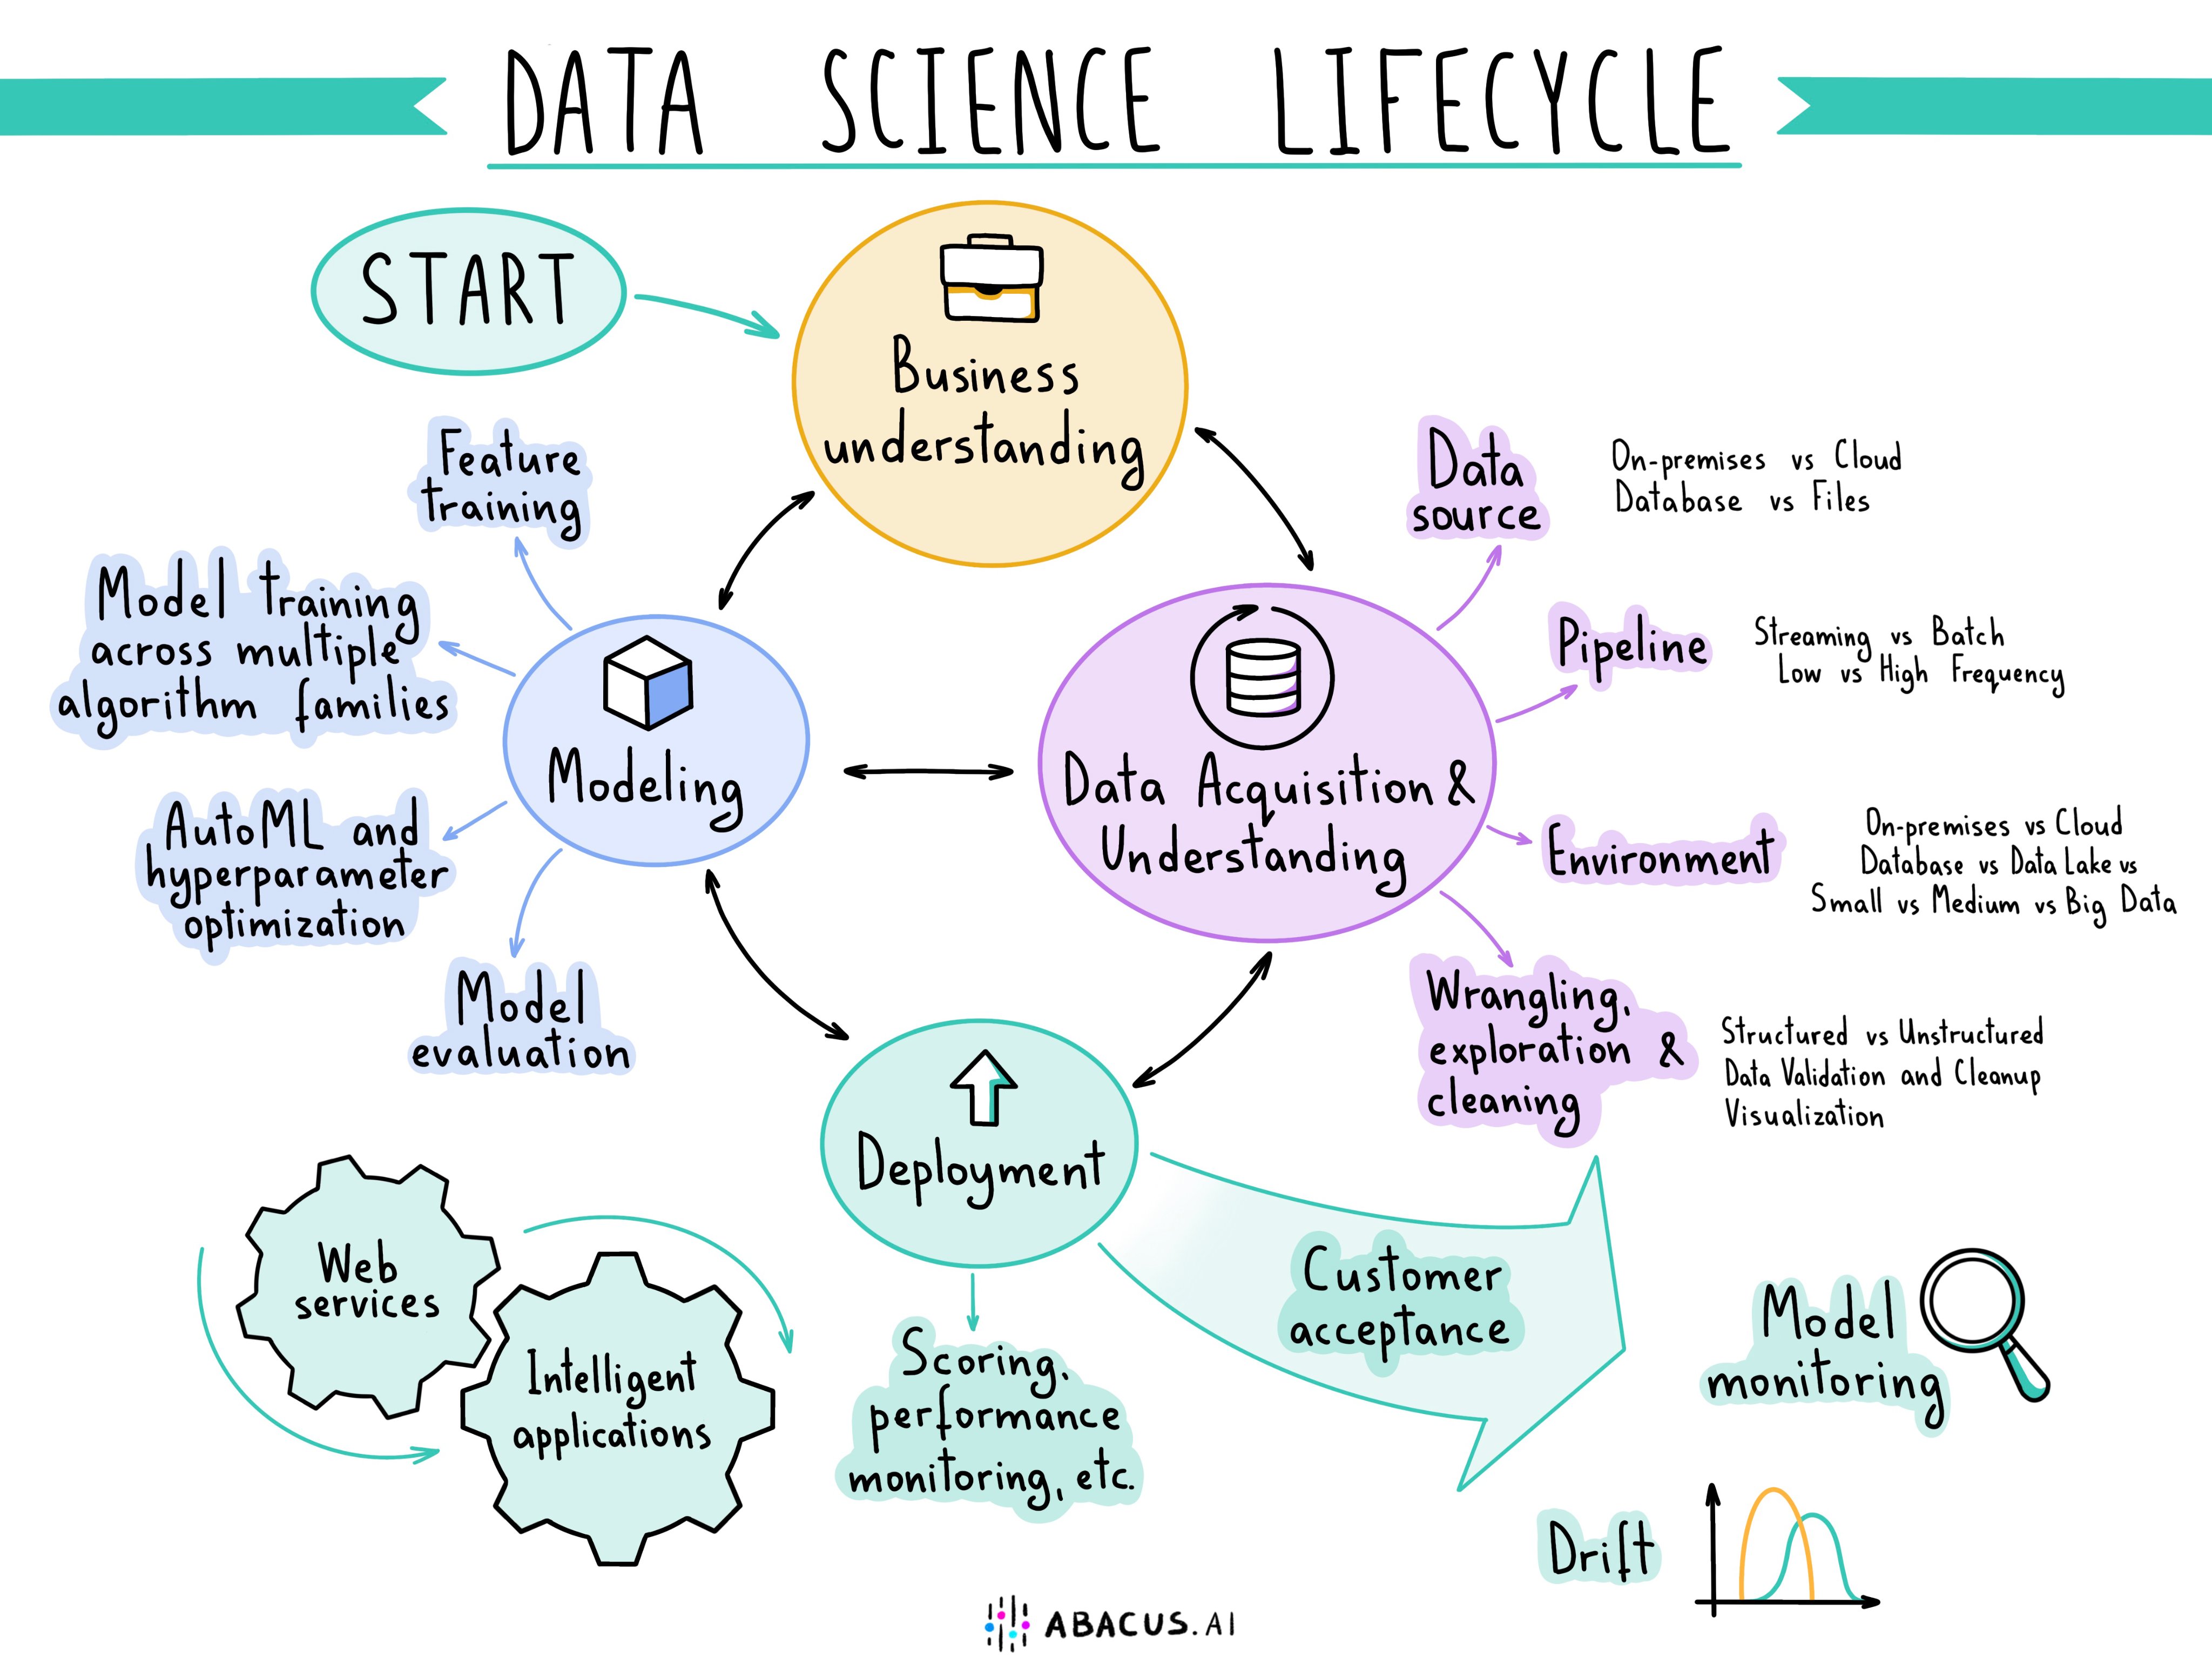 DATA SCIENCE LIFECYCLE
START
Business
understanding
Feature
training
Model training
across multiple
algorithm families
Modeling
AutoML and
hyperparameter
optimization
Model
evaluation
Data Acquisition &
Understanding
Data
source
On-premises vs Cloud
Database vs Files
Pipeline
Streaming vs Batch
Low vs High Frequency
Environment
On-premises vs Cloud
Database vs Data Lake vs
Small vs Medium vs Big Data
Wrangling,
exploration &
cleaning
Structured vs Unstructured
Data Validation and Cleanup
Visualization
Deployment
Web
services
Intelligent
applications
Scoring,
performance
monitoring, etc.
Customer
acceptance
Model
monitoring
Drift
ABACUS.AI